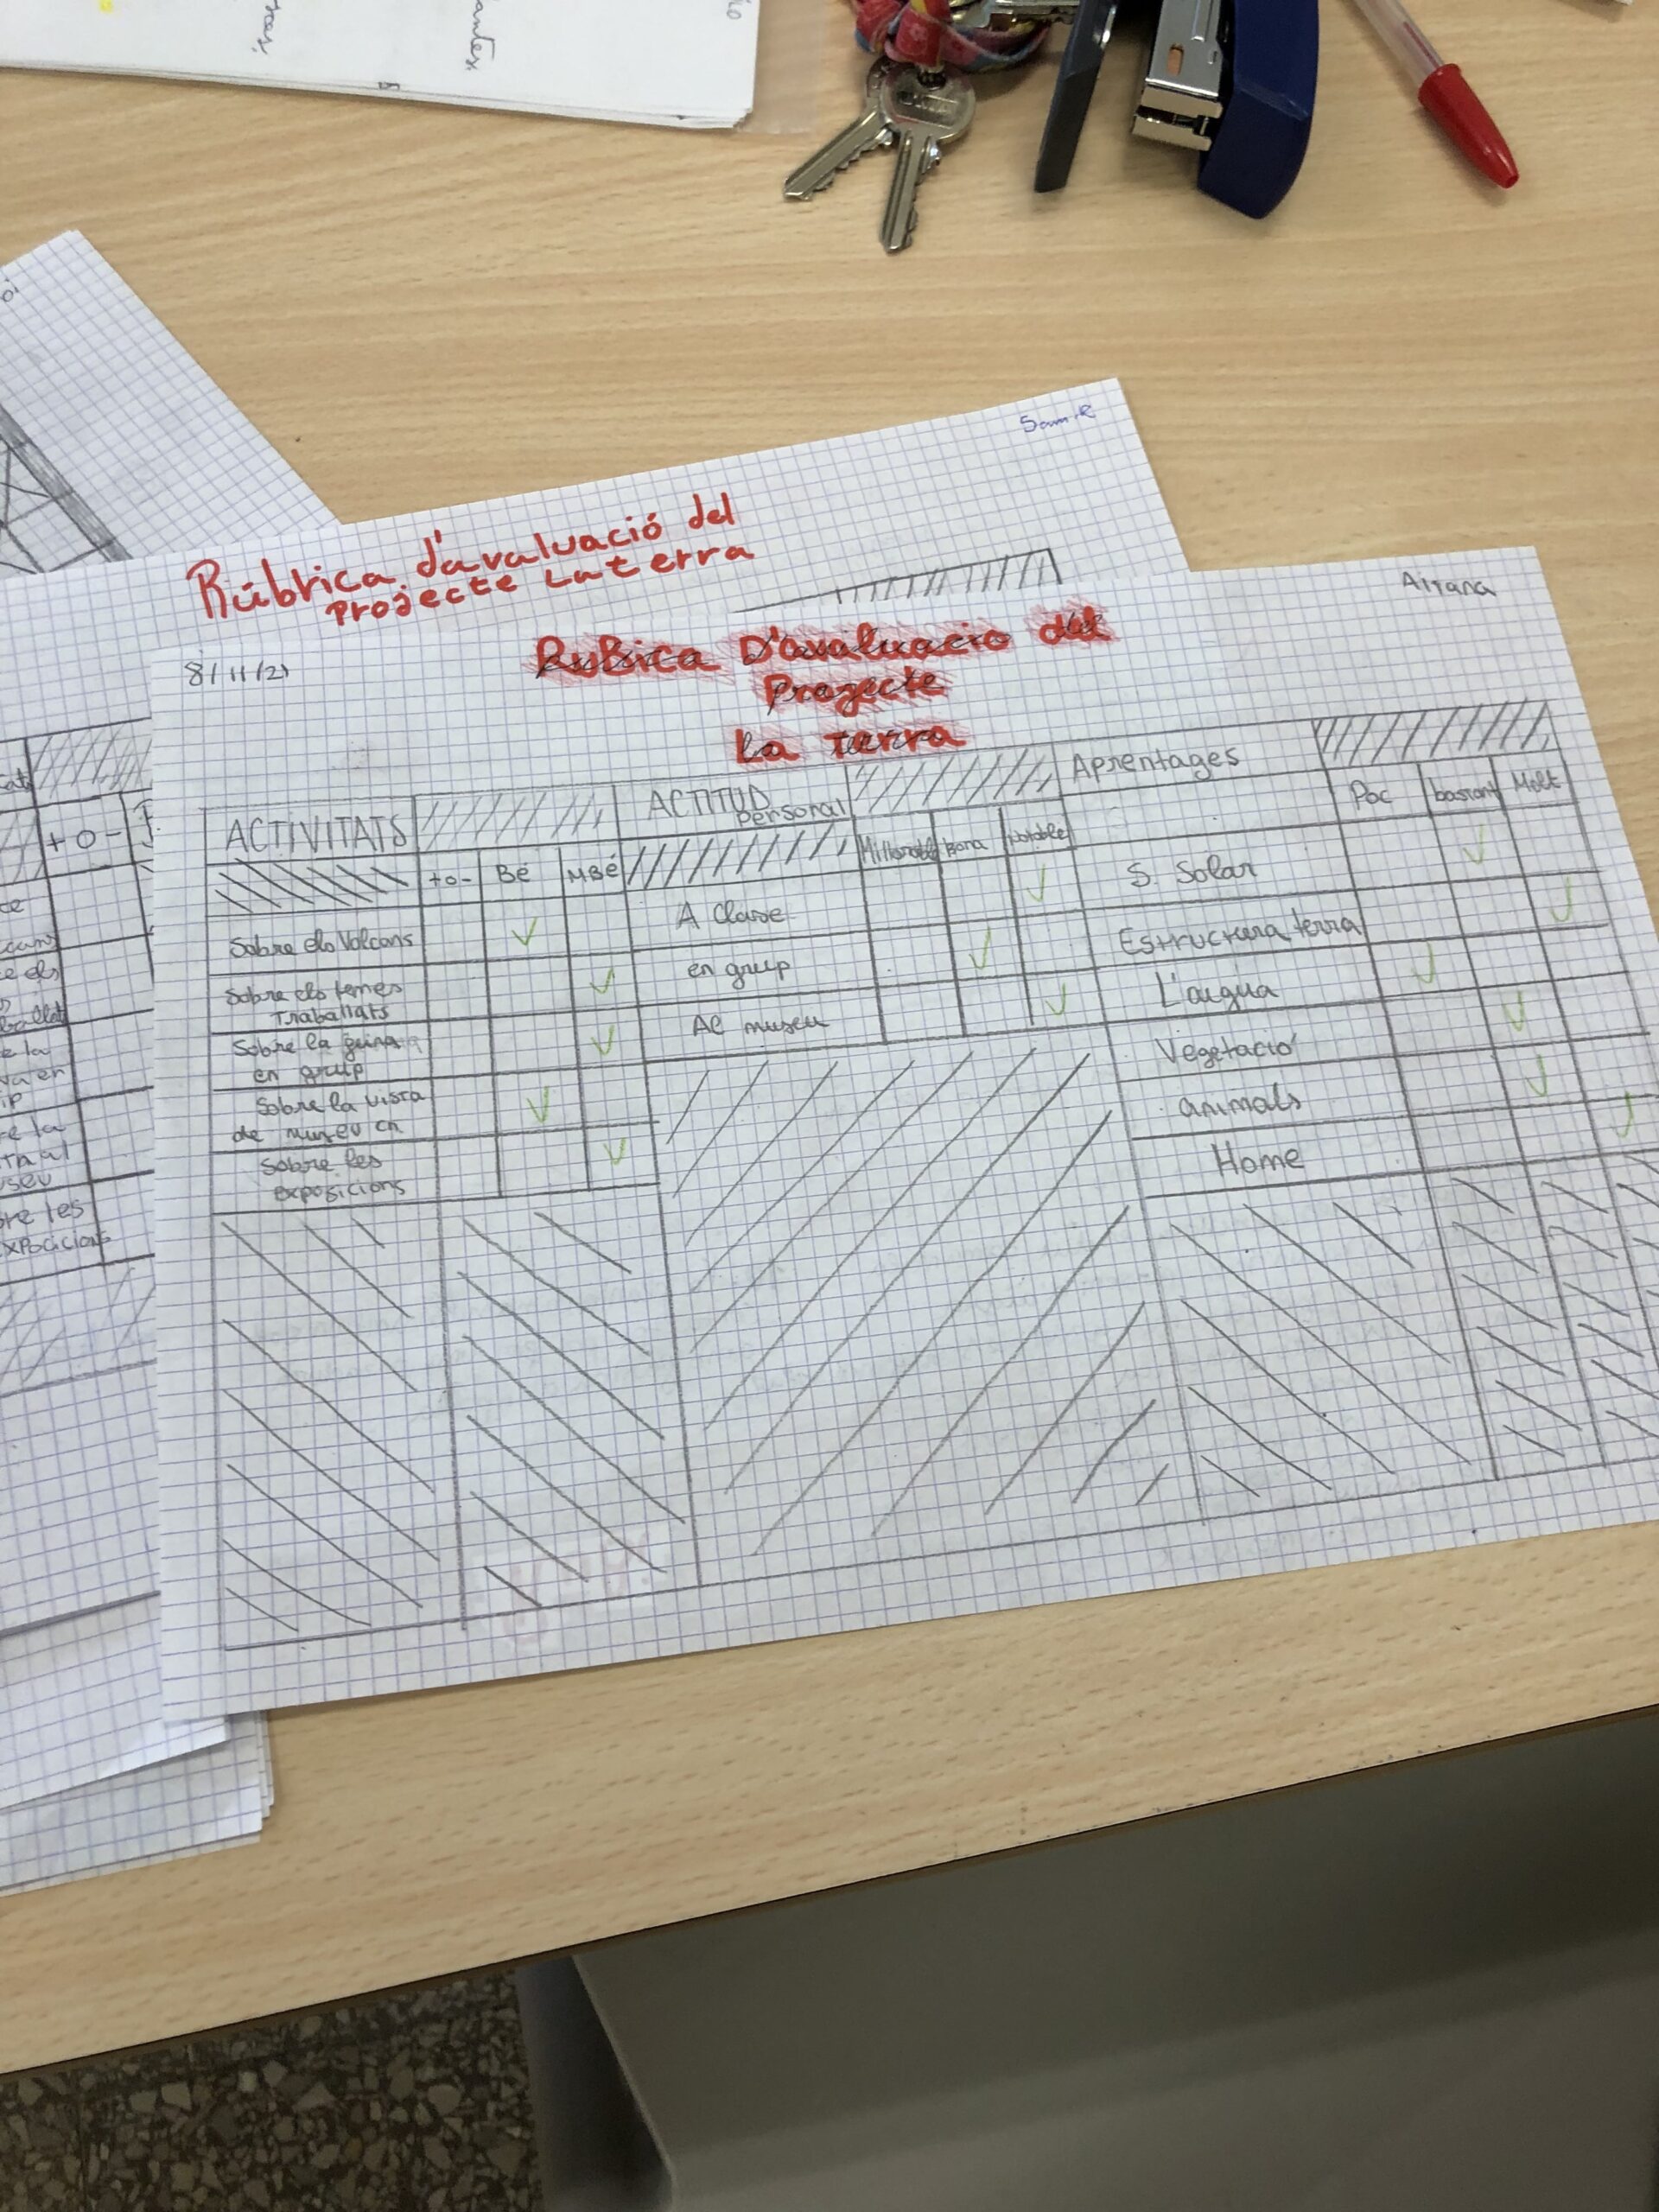 antes
Samir
Rúbrica d'avaluació del
Projecte La terra
Aitana
8/11/21
RuBrica D'avaluacio del
Projecte
la terra
ACTIVITATS
ACTITUD
Personal
Aprentages
+o-
Bé
MBé
Millorable
bona
notable
Poc
bastant
Molt
Sobre els Volcans
A Classe
S. Solar
Sobre els temes
Traballats
en grup
Estructura terra
Sobre la
en grup
Al museu
L'aigua
Sobre la vista
de museu
Vegetació
Sobre les
exposicions
animals
Home
+o-
ce els
ballat
e la
re les